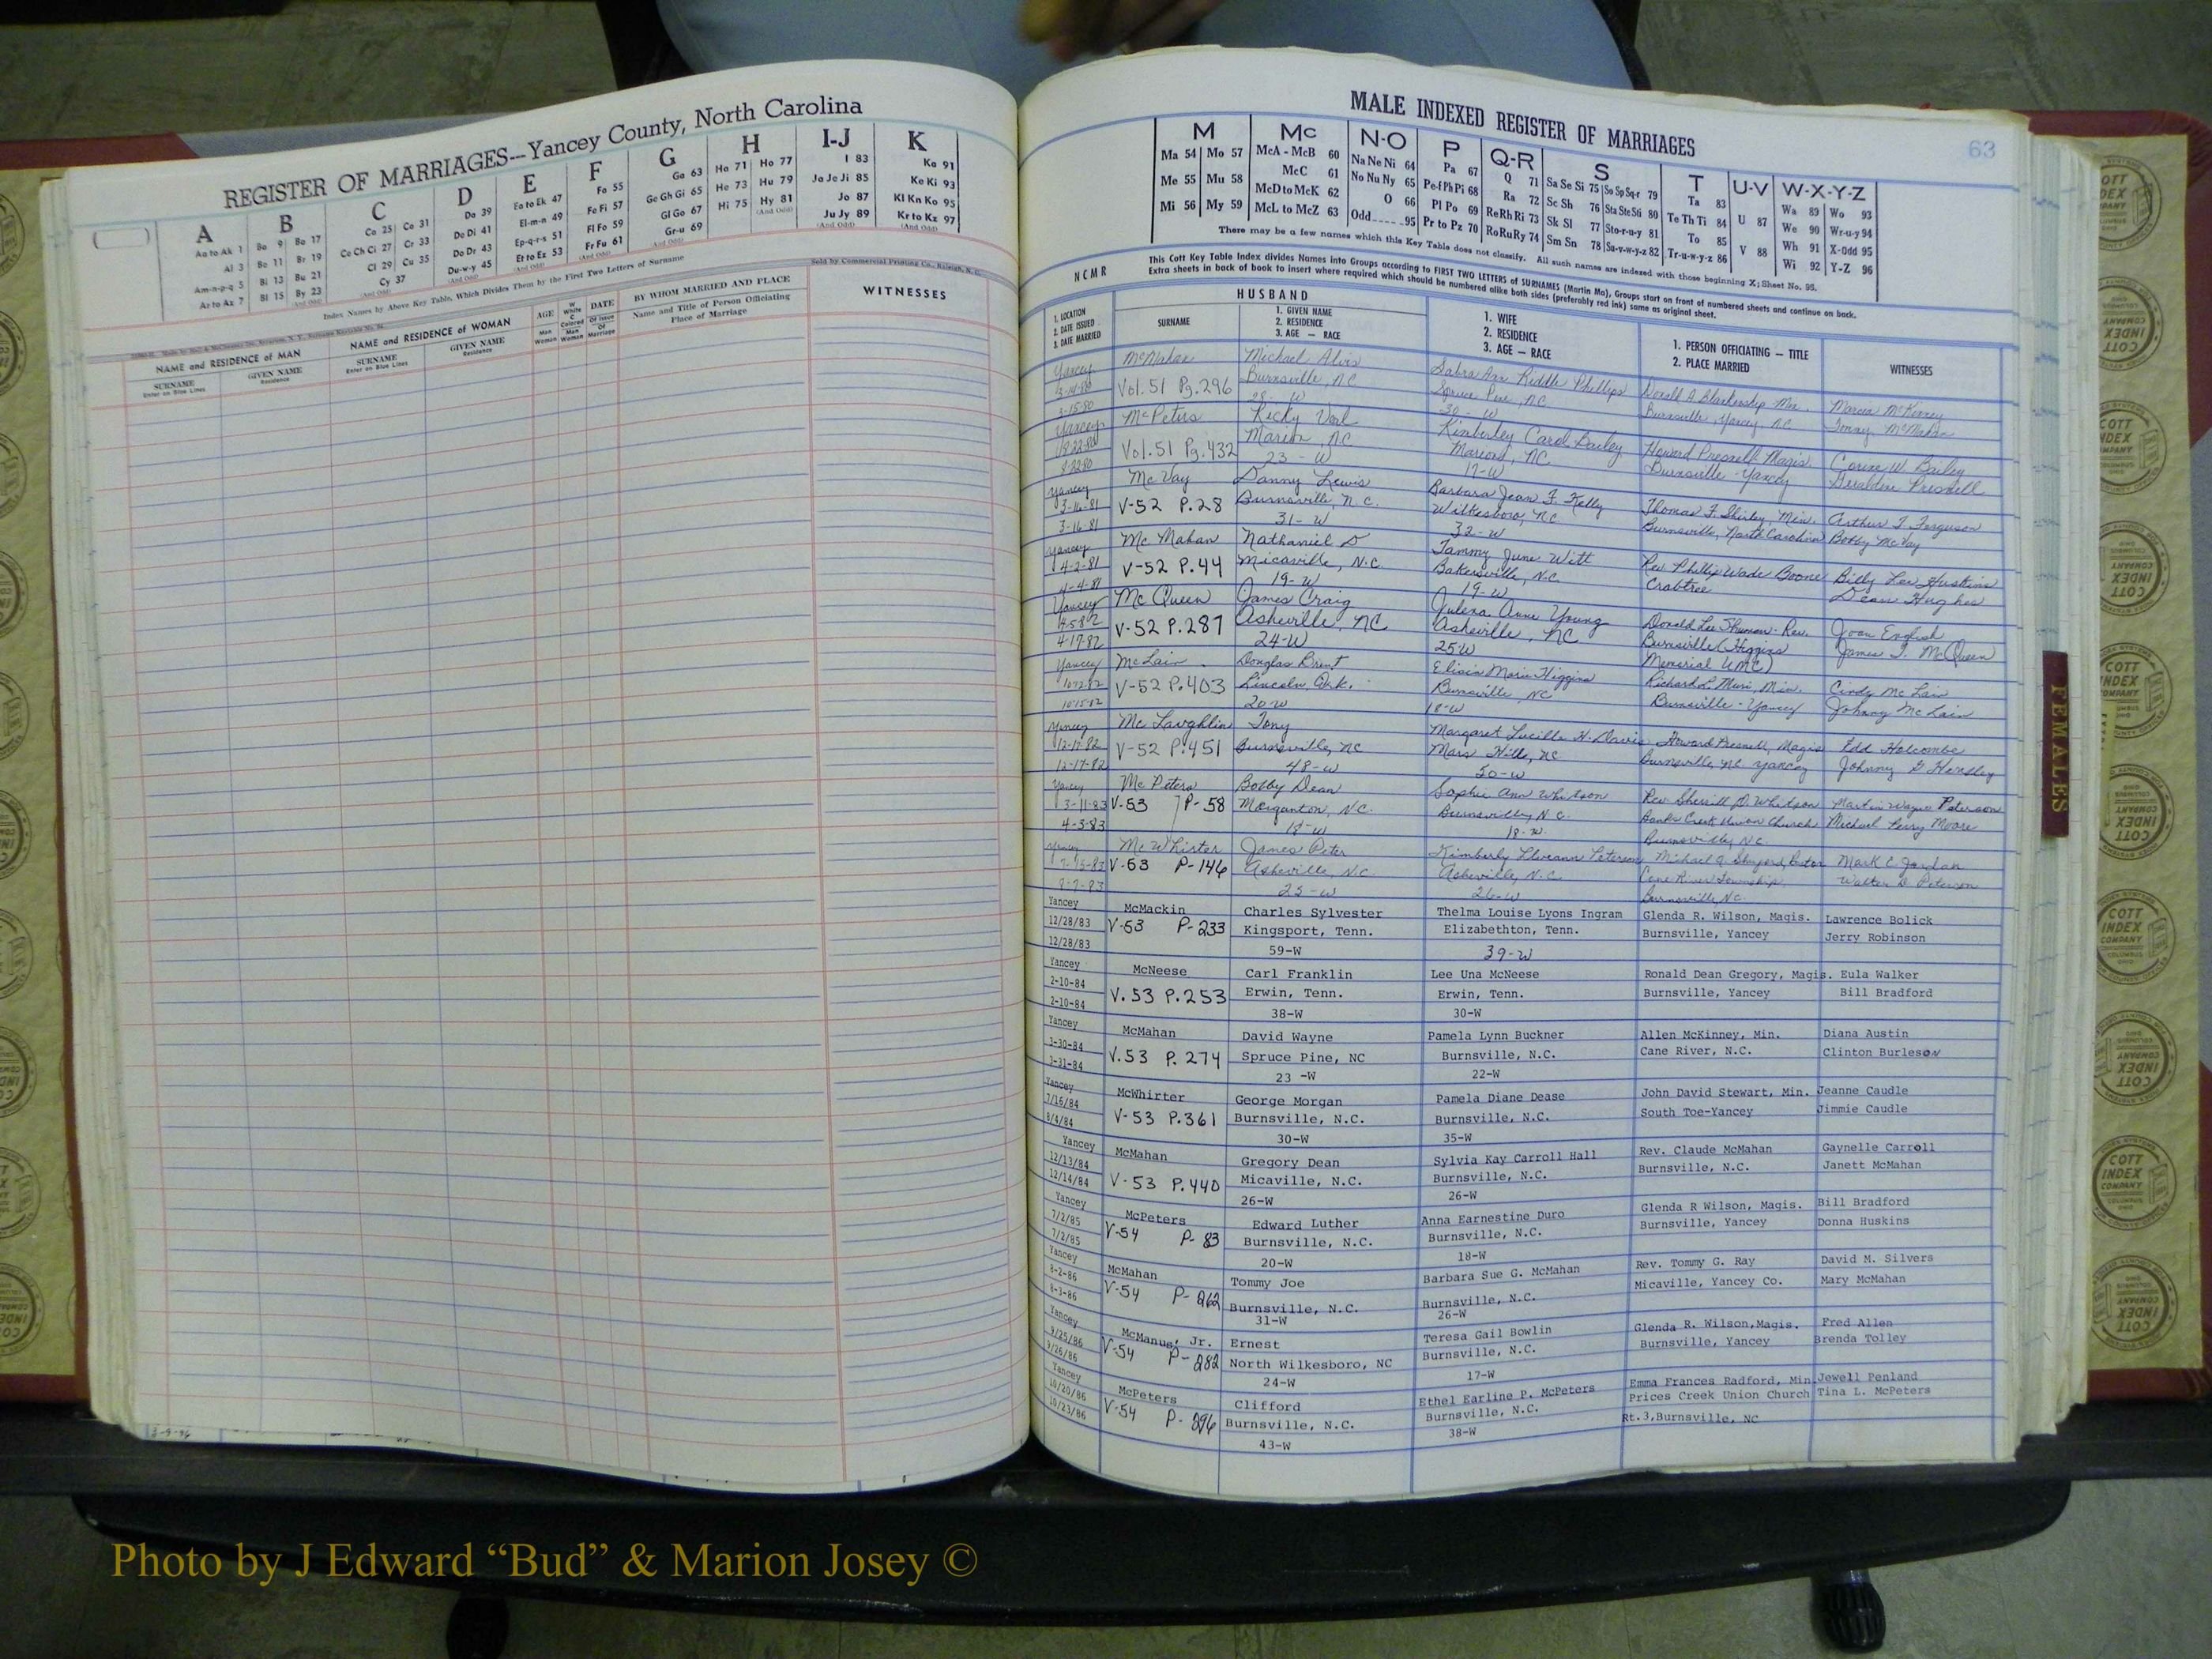 REGISTER OF MARRIAGES--Yancey County, North Carolina
A B C D E F G H I-J K
Aa to Ak 1
Al 3
Am-n-p-q 5
Ar to Az 7
Ba 9 Bo 17
Be 11 Br 19
Bi 13 Bu 21
Bl 15 By 23
Ca 25 Co 31
Ce Ch Ci 27 Cr 33
Cl 29 Cu 35
Cy 37
Da 39
De Di 41
Do Dr 43
Du-w-y 45
Ea to Ek 47
El-m-n 49
Ep-q-r-s 51
Et to Ez 53
Fa 55
Fe Fi 57
Fl Fo 59
Fr Fu 61
Ga 63
Ge Gh Gi 65
Gl Go 67
Gr-u 69
Ha 71 Ho 77
He 73 Hu 79
Hi 75 Hy 81
I 83
Ja Je Ji 85
Jo 87
Ju Jy 89
Ka 91
Ke Ki 93
Kl Kn Ko 95
Kr to Kz 97
Index Names by Above Key Table, Which Divides Them by the First Two Letters of Surname
Sold by Commercial Printing Co., Raleigh, N. C.
NAME and RESIDENCE of MAN
SURNAME
Enter on Blue Lines
GIVEN NAME
Residence
NAME and RESIDENCE of WOMAN
SURNAME
Enter on Blue Lines
GIVEN NAME
Residence
AGE
Man
Woman
W
White
C
Colored
Man
Woman
DATE
Of Issue
Of
Marriage
BY WHOM MARRIED AND PLACE
Name and Title of Person Officiating
Place of Marriage
WITNESSES
MALE INDEXED REGISTER OF MARRIAGES
63
M Mc N-O P Q-R S T U-V W-X-Y-Z
Ma 54 Mo 57
Me 55 Mu 58
Mi 56 My 59
McA - McB 60
McC 61
McD to McK 62
McL to McZ 63
Na Ne Ni 64
No Nu Ny 65
O 66
Odd 95
Pa 67
Pe-f Ph Pi 68
Pl Po 69
Pr to Pz 70
Q 71
Ra 72
Re Rh Ri 73
Ro Ru Ry 74
Sa Se Si 75 So Sp Sq-r 79
Sc Sh 76 Sta Ste Sti 80
Sk Sl 77 Sto-r-u-y 81
Sm Sn 78 Su-v-w-y-z 82
Ta 83
Te Th Ti 84
To 85
Tr-u-w-y-z 86
U 87
V 88
Wa 89 Wo 93
We 90 Wr-u-y 94
Wh 91 X-Odd 95
Wi 92 Y-Z 96
There may be a few names which this Key Table does not classify. All such names are indexed with those beginning X; Sheet No. 95.
NCMR
This Cott Key Table Index divides Names into Groups according to FIRST TWO LETTERS of SURNAMES (Martin Ma), Groups start on front of numbered sheets and continue on back.
Extra sheets in back of book to insert where required which should be numbered alike both sides (preferably red ink) same as original sheet.
1. LOCATION
2. DATE ISSUED
3. DATE MARRIED
HUSBAND
SURNAME
1. GIVEN NAME
2. RESIDENCE
3. AGE — RACE
1. WIFE
2. RESIDENCE
3. AGE — RACE
1. PERSON OFFICIATING — TITLE
2. PLACE MARRIED
WITNESSES
Yancey McMahan Michael Alvis Sabra Ann Riddle Phillips Donald A. Blankenship Min. Marcia McKinney
3-14-80 Vol. 51 Pg. 296 Burnsville, NC Spruce Pine, NC Burnsville, Yancey NC McMahan
3-15-80 28-W 30-W
Yancey McPeters Ricky Verl Kimberley Carol Bailey Howard Presnell Magis. Corine W. Bailey
8-22-80 Vol. 51 Pg. 432 Marion, NC Marion, NC Burnsville-Yancey Geraldine Presnell
8-22-80 23-W 17-W
Yancey McVay Danny Lewis Barbara Jean F. Kelly Thomas F. Shirley, Min. Arthur T. Ferguson
3-16-81 V-52 P.28 Burnsville, N.C. Wilkesboro, NC Burnsville, North Carolina Bobby McVay
3-16-81 31-W 32-W
Yancey McMahan Nathaniel D Tammy June Witt Rev. Phillip Wade Boone Billy Lee Huskins
4-2-81 V-52 P.44 Micaville, N.C. Bakersville, N.C. Crabtree Dean Hughes
4-4-81 19-W 19-W
Yancey McQueen James Craig Julena Anne Young Donald Lee Rev. Joan English
4-5-82 V-52 P.287 Asheville, NC Asheville, NC Burnsville (Higgins James McQueen
4-17-82 24-W 25W Memorial UMC)
Yancey McLain Douglas Brent Elisia Marie Higgins Richard L. Min. Cindy McLain
V-52 P.403 Lincoln, Ark. Burnsville, NC Burnsville-Yancey Johnny McLain
10-15-82 20-W 18-W
Yancey McLaughlin Tony Margaret Lucille H. Davis Howard Presnell, Magis Edd Holcombe
12-17-82 V-52 P.451 Burnsville, NC Mars Hill, NC Burnsville, NC Yancey Johnny G Hensley
12-17-82 48-W 50-W
Yancey McPeters Bobby Dean Sophie Ann Whitson Rev. Sherrill D. Whitson Martin Wayne Peterson
3-11-83 V-53 P-58 Morganton, N.C. Burnsville, N.C. Banks Creek Union Church Michael Perry Moore
4-3-83 18-W 18-W Burnsville, NC
Yancey McWhirter James Peter Kimberly Peterson Michael Mark C. Jordan
V-53 P-146 Asheville, N.C. Asheville, N.C. Cane River Township, Walter D. Peterson
25-W 26-W Burnsville, NC
Yancey McMackin Charles Sylvester Thelma Louise Lyons Ingram Glenda R. Wilson, Magis. Lawrence Bolick
12/28/83 V-53 P-233 Kingsport, Tenn. Elizabethton, Tenn. Burnsville, Yancey Jerry Robinson
12/28/83 59-W 39-W
Yancey McNeese Carl Franklin Lee Una McNeese Ronald Dean Gregory, Magis. Eula Walker
2-10-84 V.53 P.253 Erwin, Tenn. Erwin, Tenn. Burnsville, Yancey Bill Bradford
2-10-84 38-W 30-W
Yancey McMahan David Wayne Pamela Lynn Buckner Allen McKinney, Min. Diana Austin
3-30-84 V.53 P.274 Spruce Pine, NC Burnsville, N.C. Cane River, N.C. Clinton Burleson
3-31-84 23 -W 22-W
Yancey McWhirter George Morgan Pamela Diane Dease John David Stewart, Min. Jeanne Caudle
7/16/84 V-53 P.361 Burnsville, N.C. Burnsville, N.C. South Toe-Yancey Jimmie Caudle
8/4/84 30-W 35-W
Yancey McMahan Gregory Dean Sylvia Kay Carroll Hall Rev. Claude McMahan Gaynelle Carroll
12/13/84 V-53 P.440 Micaville, N.C. Burnsville, N.C. Burnsville, N.C. Janett McMahan
12/14/84 26-W 26-W
Yancey McPeters Edward Luther Anna Earnestine Duro Glenda R Wilson, Magis. Bill Bradford
7/2/85 V-54 P-83 Burnsville, N.C. Burnsville, N.C. Burnsville, Yancey Donna Huskins
7/2/85 20-W 18-W
Yancey McMahan Tommy Joe Barbara Sue G. McMahan Rev. Tommy G. Ray David M. Silvers
8-2-86 V-54 P-262 Burnsville, N.C. Burnsville, N.C. Micaville, Yancey Co. Mary McMahan
8-3-86 31-W 26-W
Yancey McManus, Jr. Ernest Teresa Gail Bowlin Glenda R. Wilson,Magis. Fred Allen
9/25/86 V-54 P-282 North Wilkesboro, NC Burnsville, N.C. Burnsville, Yancey Brenda Tolley
9/26/86 24-W 17-W
Yancey McPeters Clifford Ethel Earline P. McPeters Emma Frances Radford, Min Jewell Penland
10/20/86 V-54 P-296 Burnsville, N.C. Burnsville, N.C. Prices Creek Union Church Tina L. McPeters
10/23/86 43-W 38-W Rt.3,Burnsville, NC
FEMALES
COTT
INDEX
COMPANY
COLUMBUS
OHIO
Photo by J Edward “Bud” & Marion Josey ©